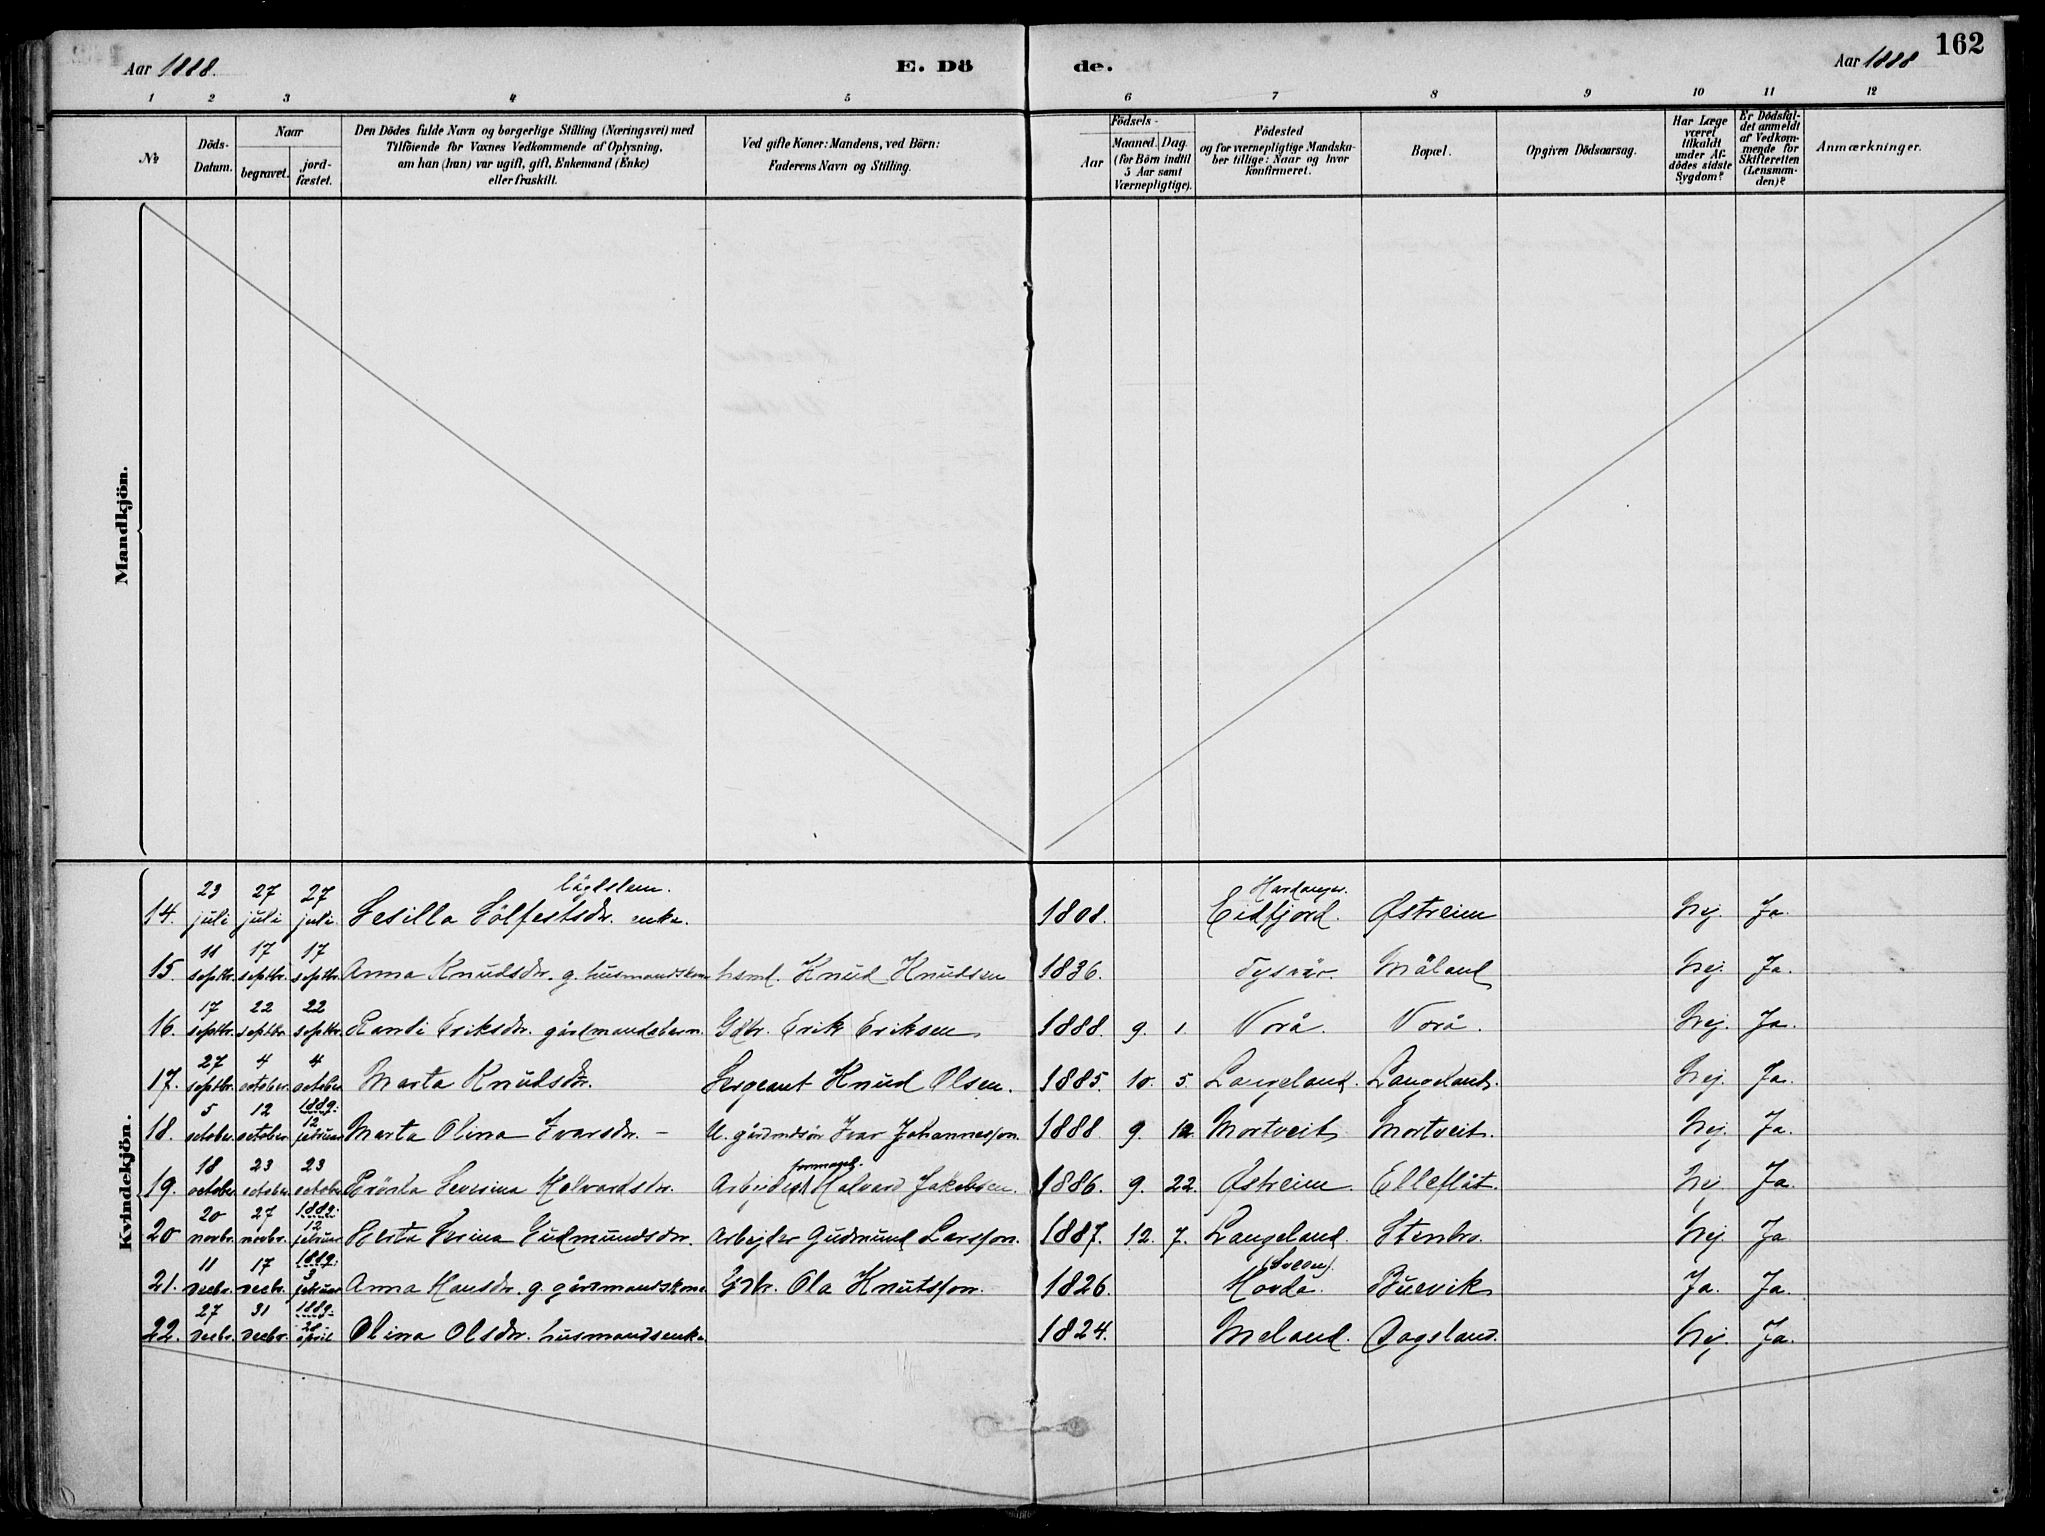 162
Aar 1888. E. Dö de. Aar 1888
1 2 3 4 5 6 7 8 9 10 11 12
№
Döds-
Datum.
Naar
begravet.
jord-
fæstet.
Den Dödes fulde Navn og borgerlige Stilling (Næringsvei) med
Tilföiende for Voxnes Vedkommende af Oplysning,
om han (hun) var ugift, gift, Enkemand (Enke)
eller fraskilt.
Ved gifte Koner: Mandens, ved Börn:
Faderens Navn og Stilling.
Födsels-
Aar
Maaned. Dag.
(for Börn indtil
5 Aar samt
Værnepligtige).
Födested
og for værnepligtige Mandska-
ber tillige: Naar og hvor
konfirmeret.
Bopæl.
Opgiven Dödsaarsag.
Har Læge
været
tilkaldt
under Af-
dödes sidste
Sygdom?
Er Dödsfal-
det anmeldt
af Vedkom-
mende for
Skifteretten
(Lensman-
den)?
Anmærkninger.
Mandkjön.
Kvindekjön.
23 27 27 lägdslem. Hardanger.
14. juli juli juli Sesilla Sölfestsdr. enke. 1808. Eidfjord. Østreim Nej. Ja.
11 17 17
15. septbr. septbr. septbr. Anna Knudsdr. g. husmandskone husmd. Knud Knudsen 1836. Tysvär. Måland Nej. Ja.
17 22 22
16. septbr. septbr. septbr. Randi Eriksdr. gårdmandsbarn. Gdbr. Erik Eriksen 1888. 9. 1. Vorå. Vorå. Nej. Ja.
27 4 4
17. septbr. october. october Marta Knudsdtr. Sergeant Knud Olsen. 1885. 10. 5. Langeland. Langeland. Nej. Ja.
5 12 1889. 12
18. october. october. februar Marta Olina Ivarsdr. – U. gårdmdsön Ivar Johannesson. 1888. 9. 12 Mortveit Mortveit. Nej. Ja.
18 23 23 formand.
19. october. october. october Severina Halvardsdr. Halvard Jakobsen. 1886. 9. 22. Østreim. Elleflåt. Nej. Ja.
20 27 1889. 12
20 novbr. novbr. februar Berta Serina Gudmundsdr. Arbejder Gudmund Larsson. 1887. 12. 7. Langeland. Stenbro. Nej. Ja
11 17 1889. 3
21. decbr. decbr. februar Anna Hansdr. g. gårdmandskone Gdbr. Ola Knutsson. 1826. Hovda. Buevik Ja. Ja.
27 31 1889. 28
22. decbr. decbr. april Olina Olsdr. husmandsenke 1824. Meland. Dagsland. Nej. Ja.